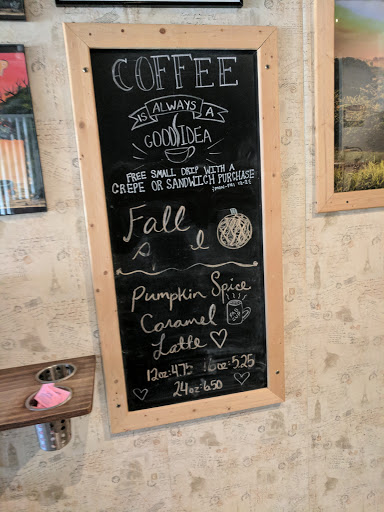 COFFEE
IS ALWAYS A
GOOD IDEA
FREE SMALL DRIP WITH A
CREPE OR SANDWICH PURCHASE
Fall
Pumpkin Spice
Caramel
Latte
12oz: 4.75 16oz: 5.25
24oz: 6.50